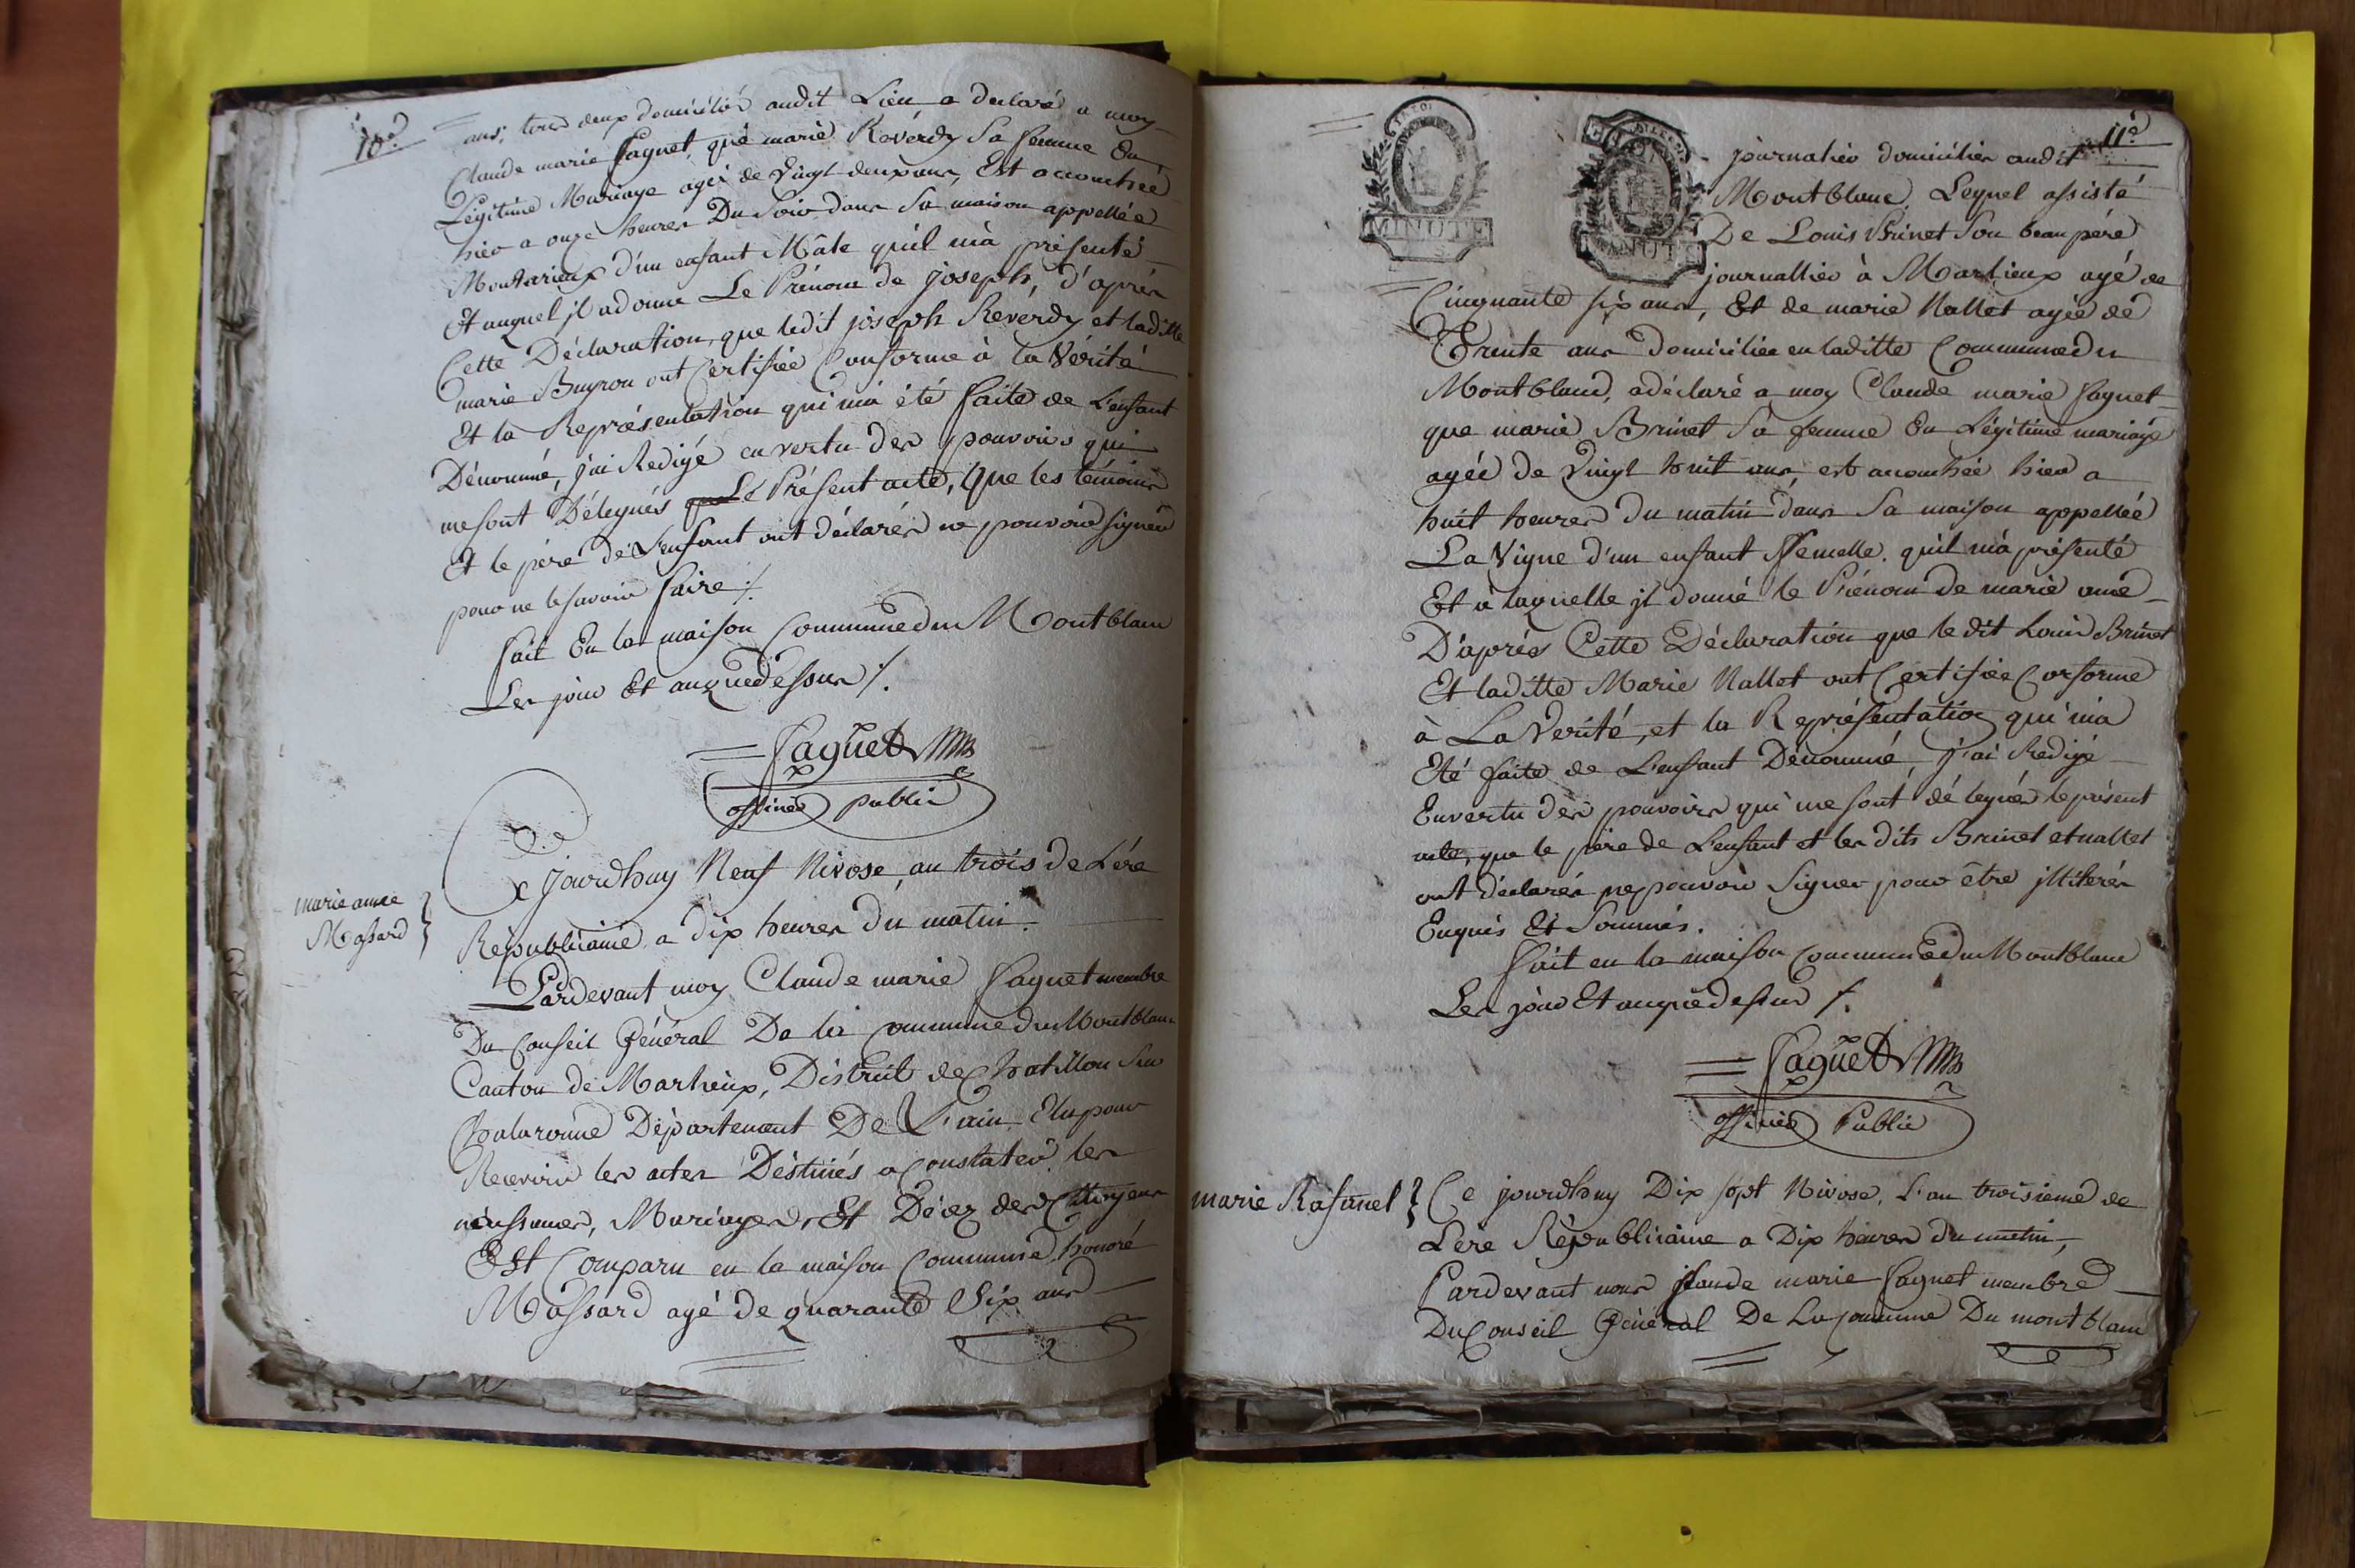 10e
ans, tous deux domiciliés audit Lieu a declaré a moy
Claude marie Faguet, que marie Reverdy Sa femme En
Légitime Mariage agée de Vingt deux ans, Est accouchée
hier a onze heures Du Soir dans Sa maison appellée
Montarieux d'un enfant Mâle qu'il m'a présenté
Et auquel jl a donné Le Prénom de joseph, d'après
Cette Déclaration, que ledit joseph Reverdy et laditte
marie Buyron ont Certifiée Conforme à la Vérité
Et la Représentation qui m'a été faite de L'enfant
Dénommé, j'ai Redigé en vertu des pouvoirs qui
me sont Délegués que Le Présent acte, que les témoins
Et le père de L'enfant ont déclarés ne pouvoir signer
pour ne le savoir faire ./.
fait En la maison Commune du Montblanc
Les jour Et an que dessus ./.
Faguet
officier public
marie anne
Massard
Ce jourd'huy Neuf Nivose, an trois de L'ére
Républicaine a dix heures du matin.
Pardevant moy Claude marie Faguet membre
Du Conseil Général De la Commune du Montblanc
Canton de Marlieux, District de Chatillon Sur
Chalaronne Département De L'ain Elu pour
Recevoir les actes Destinés a Constater les
naissances, Mariages, Et Décez des Citoyens
Est Comparu en la maison Commune, honoré
Massard agé de quarante Six ans
11e
MINUTE
MINUTE
journalier domicilier audit
Montblanc, Lequel assisté
De Louis Brinet Son beau pére
journallier à Marlieux agé de
Cinquante six ans, Et de marie Nallet agée de
Trente ans domiciliée en laditte Commune du
Montblanc, a déclaré a moy Claude marie Faguet
que marie Brinet Sa femme En Légitime mariage
agée de Vingt huit ans, est accouchée hier a
huit heures du matin dans Sa maison appellée
La Vigne d'un enfant Femelle qu'il m'a présenté
Et à laquelle jl donné le Prénom de marie anne
D'après Cette Déclaration que le dit Louis Brinet
Et laditte Marie Nallet ont Certifiée Conforme
à La Verité, et la Représentation qui m'a
Eté faite de L'enfant Dénommé, j'ai Redigé
En vertu des pouvoirs qui me sont délegués le présent
acte, que le père de L'enfant et les dits Brinet et nallet
ont déclarés ne pouvoir Signer pour être jlliterés
Enquis Et Sommés.
fait en la maison Commune du Montblanc
Les jour Et an que dessus ./.
Faguet
officier Public
marie Rasanet
Ce jourd'huy Dix sept Nivose, L'an troisieme de
L'ére Républicaine a Dix heures du matin,
Pardevant nous Claude marie Faguet membre
Du Conseil Général De La Commune Du montblanc